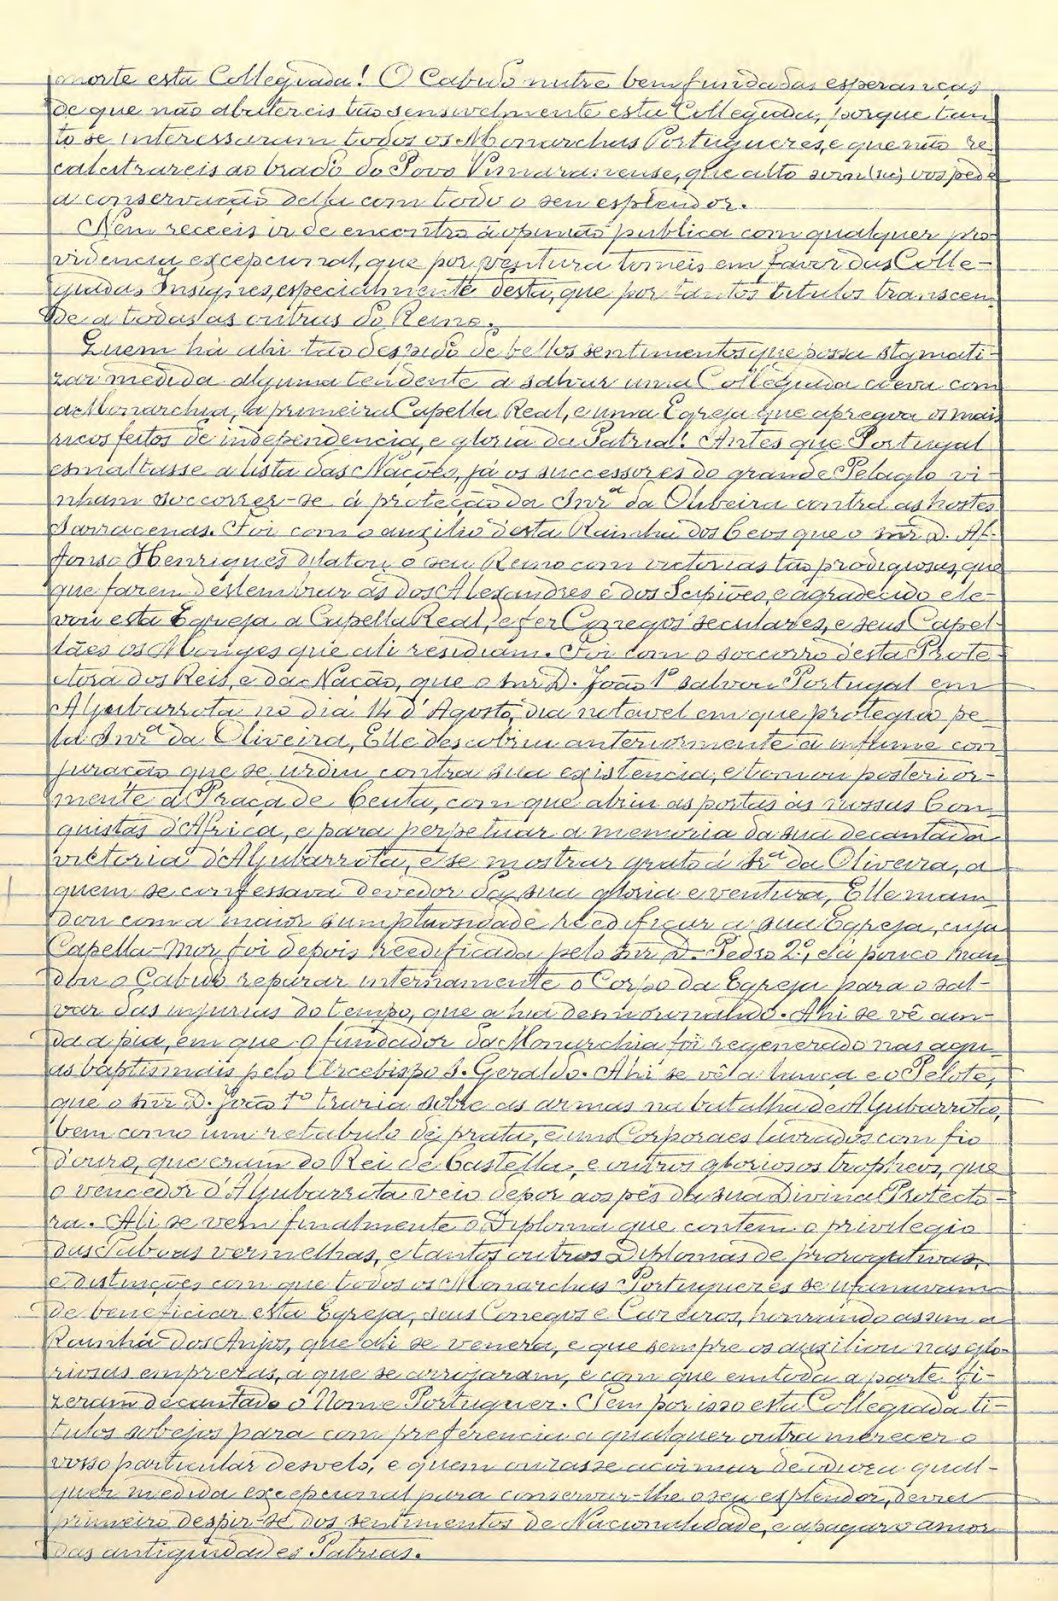 morte esta Collegiada! O Cabido nutre bem fundadas esperanças
de que não abatereis tão sensivelmente esta Collegiada, porque tan
to se interessaram todos os Monarchas Portuguezes, e que não re
calcitrareis ao brado do Povo Vimaranense, que alto som (sic) vos pede
a conservação della com todo o seu esplendor.
Nem receeis ir de encontro á opinião publica com qualquer pro
videncia excepcional, que por ventura tomeis em favor das Colle-
giadas Insignes, especialmente desta, que por tantos titulos transcen
de a todas as outras do Reino.
Quem há ahi tão despido de bellos sentimentos que possa stgmati-
zar medida alguma tendente a salvar uma Collegiada coeva com
a Monarchia, a primeira Capella Real, e uma Egreja que apregoa os mais
ricos feitos de independencia, e gloria da Patria! Antes que Portugal
esmaltasse a lista das Nações, já os successores do grande Pelagio vi-
nham soccorrer-se á proteção da Snrª da Oliveira contra as hostes
Sarracenas. Foi com o auxilio desta Rainha dos Ceos que o Snr D. Af-
fonso Henriques dilatou o seu Reino com victorias tão prodigiosas, que
que fazem deslembrar as dos Alexandres e dos Scipiões, e agradecido ele-
vou esta Egreja a Capella Real, e fez Conegos seculares, e seus Capel-
lães os Monges que ali residiam. Foi com o soccorro desta Prote-
ctora dos Reis, e da Nação, que o Snr D. João 1º salvou Portugal em
Aljubarrota no dia 14 d'Agosto, dia notavel em que protegido pe-
la Snrª da Oliveira, Elle descobriu anteriormente a infame con
juração que se urdiu contra sua existencia, e tomou posterior-
mente a Praça de Ceuta, com que abriu as portas ás nossas Con-
quistas d'Africa, e para perpetuar a memoria da sua decantada
victoria d'Aljubarrota, e se mostrar grato á Srª da Oliveira, a
quem se confessava devedor da sua gloria e ventura, Elle man
dou com a maior sumptuosidade reedificar a sua Egreja, cuja
Capella-Mor foi depois reedificada pelo Snr D. Pedro 2º, e há pouco man
dou o Cabido reparar internamente o Corpo da Egreja para o sal-
var das injurias do tempo, que a hia desmoronando. Ahi se vê ain-
da a pia, em que o fundador da Monarchia foi regenerado nas agu-
as baptismais pelo Arcebispo S. Geraldo. Ahi se vê a lança e o Pelote,
que o Snr D. João 1º trazia sobre as armas na batalha de Aljubarrota,
bem como um retabulo de prata, e uns Corporaes lavrados com fio
d'ouro, que eram do Rei de Castella, e outros gloriosos tropheos, que
o vencedor d'Aljubarrota veio depor aos pés da sua Divina Protecto-
ra. Ali se vem finalmente o Diploma que contem o privilegio
das Taboas vermelhas, e tantos outros Diplomas de prorogativas,
e distinções com que todos os Monarchas Portuguezes se ufanavam
de beneficiar esta Egreja, seus Conegos e Cazeiros, honrando assim a
Rainha dos Anjos, que ali se venera, e que sempre os auxiliou nas glo-
riosas emprezas, a que se arrojaram, e com que em toda a parte fi-
zeram decantado o Nome Portuguez. Tem por isso esta Collegiada ti-
tulos sobejos para com preferencia a qualquer outra merecer o
vosso particular desvelo, e quem ousasse acoimar de odiosa qual-
quer medida excepcional para conservar-lhe o seu esplendor, devia
primeiro despir-se dos sentimentos de Nacionalidade, e apagar o amor
das antiguidades Patrias.